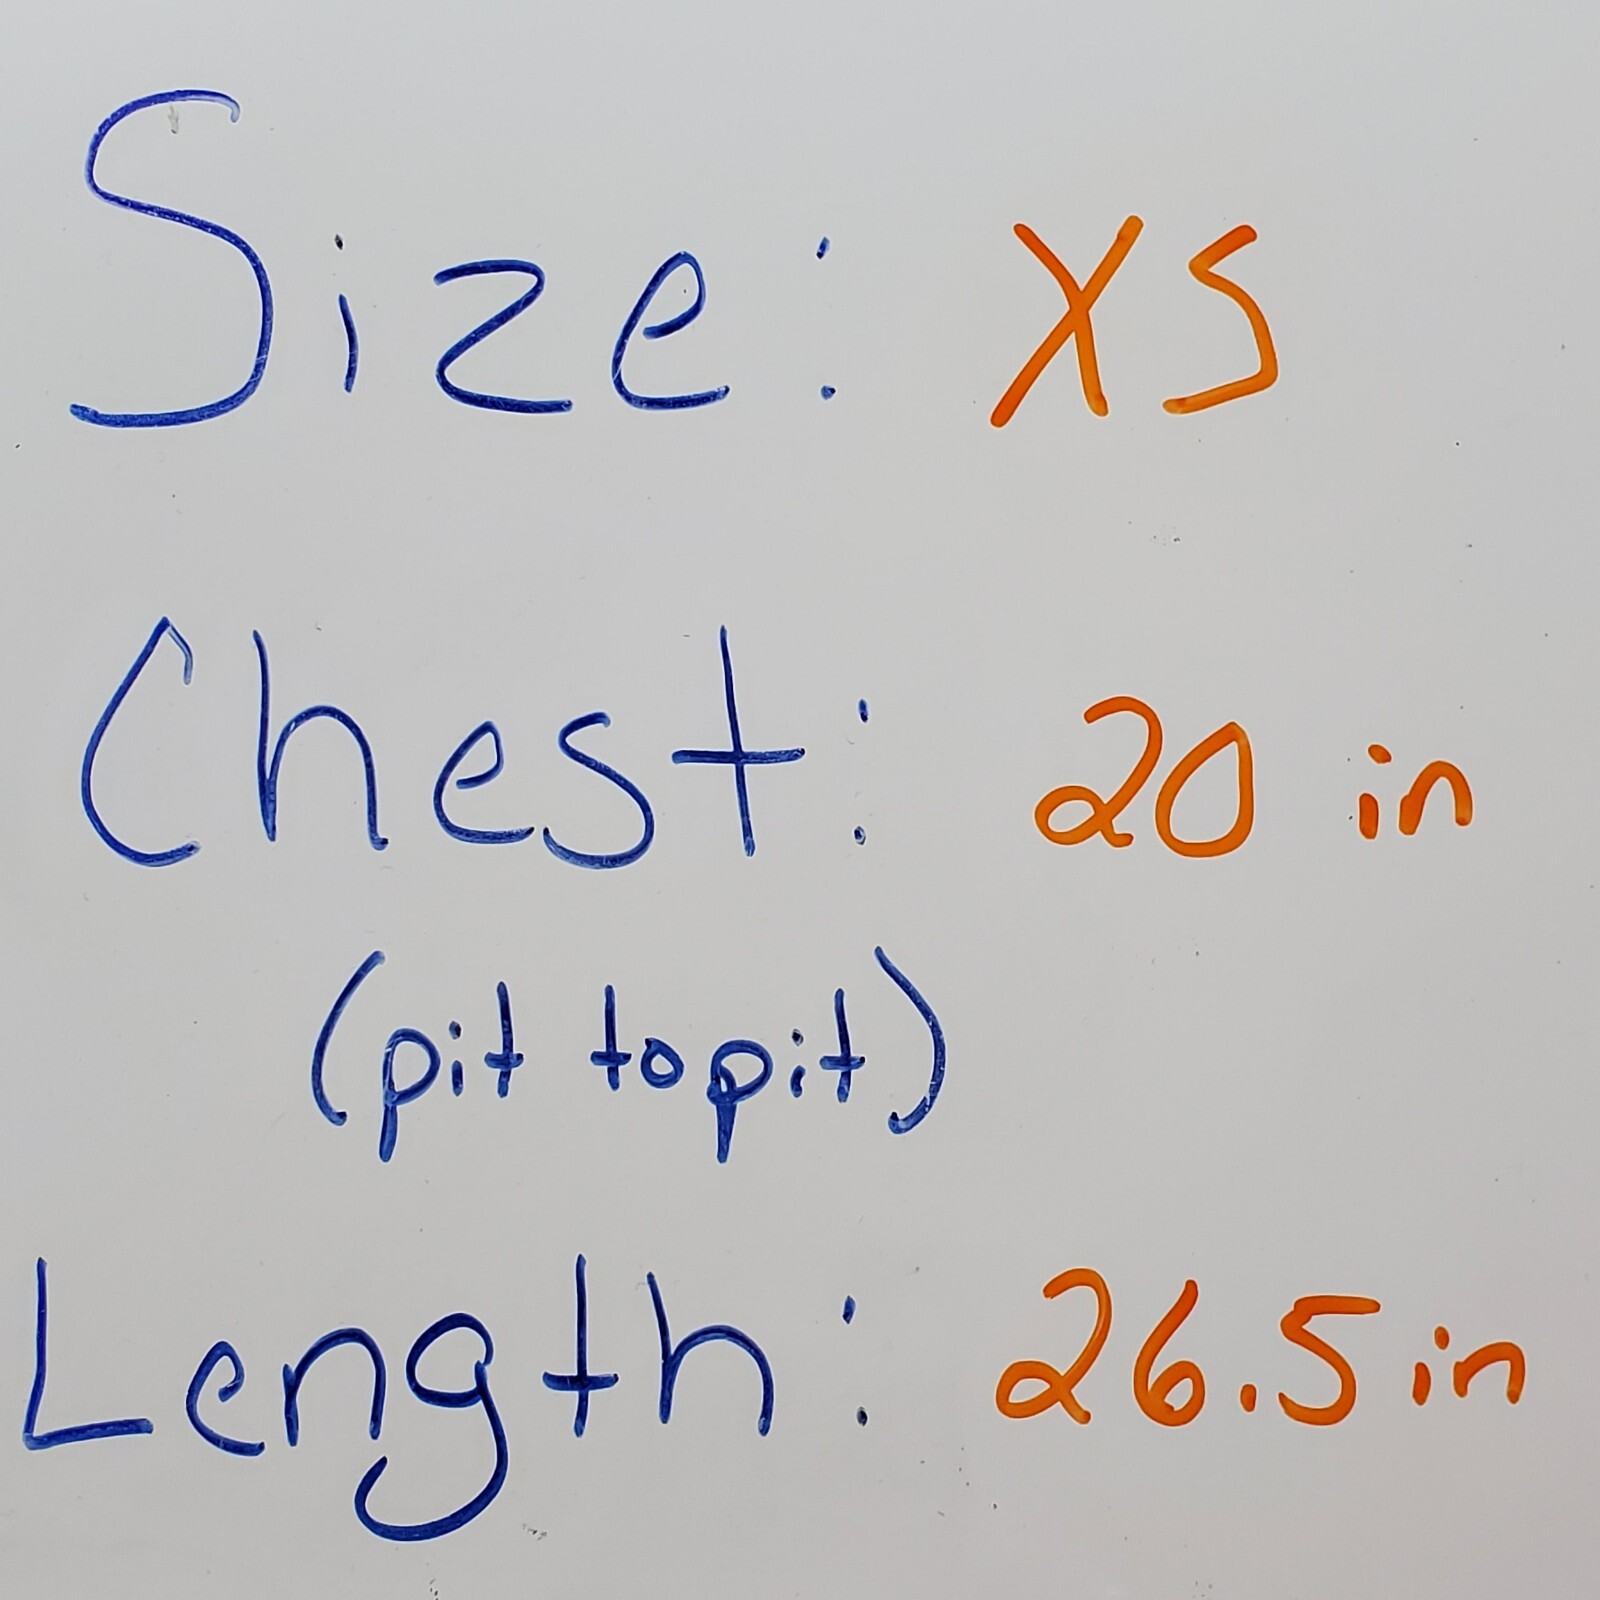 Size: XS
Chest: 20 in
(pit to pit)
Length: 26.5 in